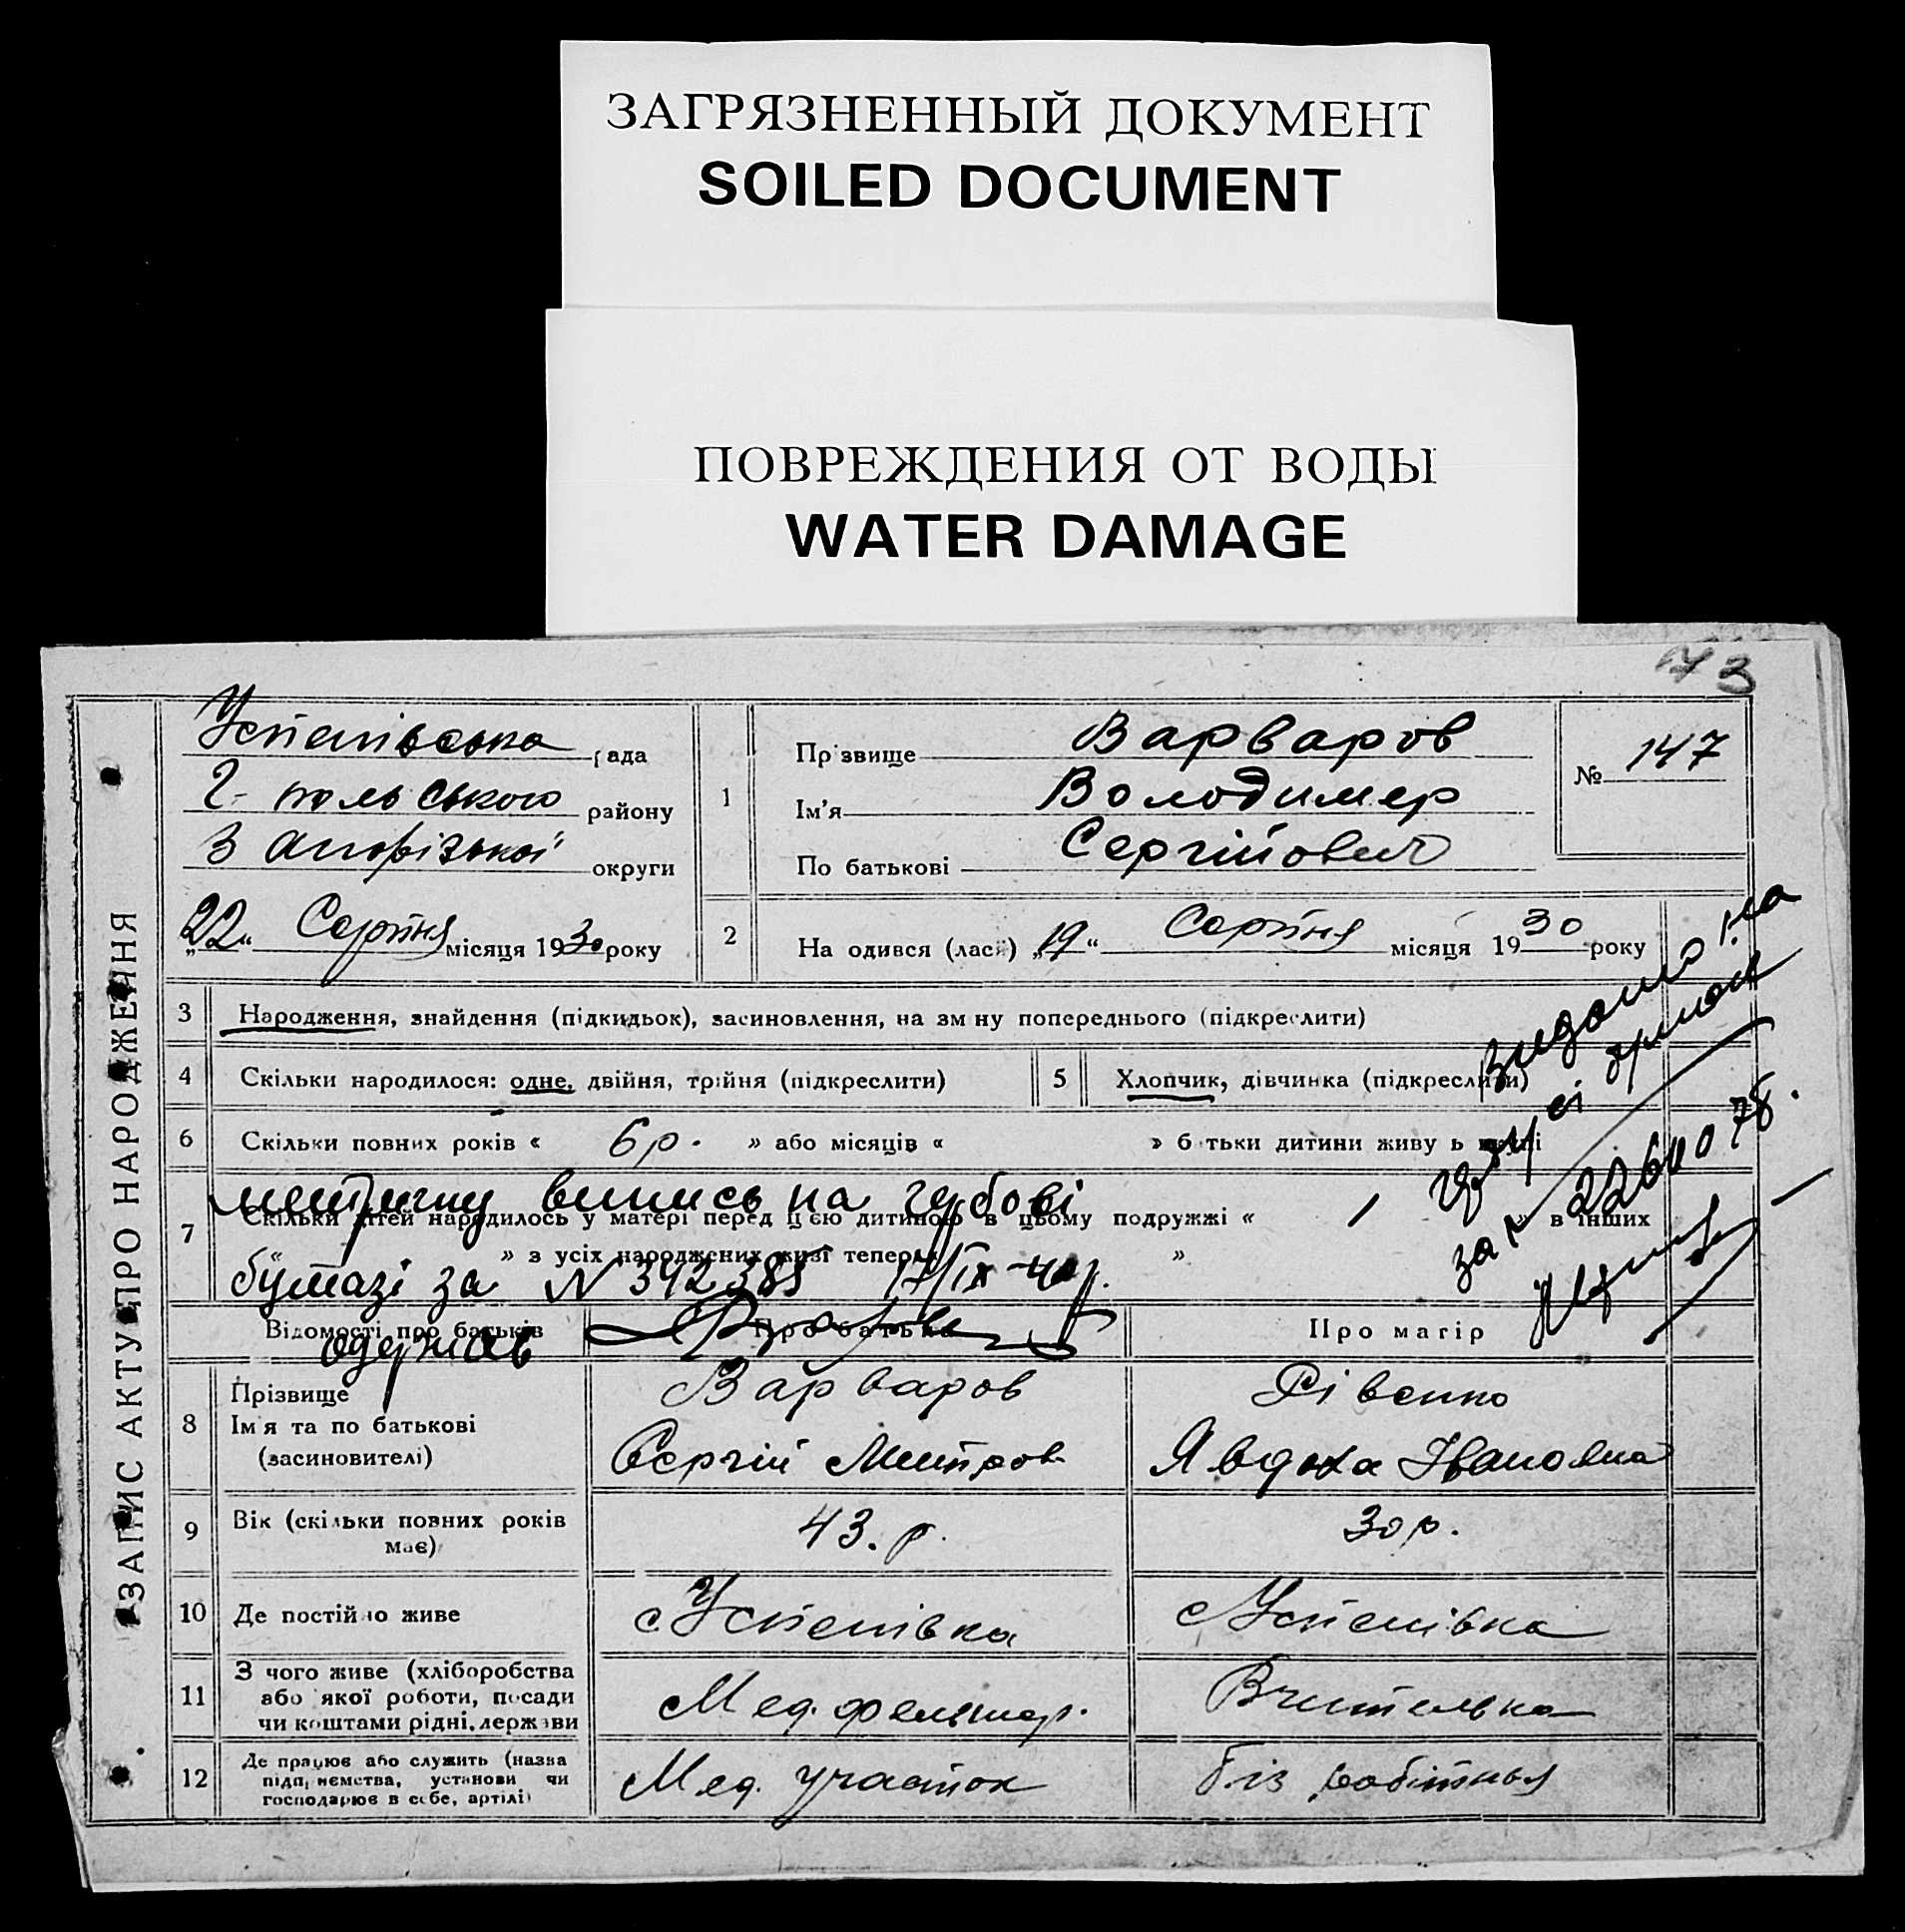 ЗАГРЯЗНЕННЫЙ ДОКУМЕНТ
SOILED DOCUMENT
ПОВРЕЖДЕНИЯ ОТ ВОДЫ
WATER DAMAGE
73
ЗАПИС АКТУ ПРО НАРОДЖЕННЯ
Успенівська рада
Г-польського району
Запорізької округи
„22“ Серпня місяця 1930 року
1
Прізвище Варваров
Ім'я Володимер
По батькові Сергійович
№ 147
2 На одився (лася) „19“ Серпня місяця 1930 року
3 Народження, знайдення (підкидьок), засиновлення, на зм ну попереднього (підкреслити)
4 Скільки народилося: одне, двійня, трійня (підкреслити)
5 Хлопчик, дівчинка (підкреслити)
6 Скільки повних років « 6 р. » або місяців « » б тьки дитини живу ь
7 Скільки дітей народилось у матері перед цією дитиною в цьому подружжі « 1 » в інших
» з усіх народжених живі тепер « »
метричну випись на гербові
бумазі за N 342385 17/IX-40р.
одержав
Видано на
за № 2260078.
Відомості про батьків Про батька Про матір
8 Прізвище
Ім'я та по батькові
(засиновителі)
Варваров
Сергій Митров.
Рівенко
Явдоха Івановна
9 Вік (скільки повних років
має)
43. р.
30 р.
10 Де постійно живе
с. Успенівка
с Успенівка
11 З чого живе (хліборобства
або якої роботи, посади
чи коштами рідні, держави
Мед. фельшер.
Вчителька
12 Де працює або служить (назва
підприємства, установи чи
господарює в себе, артілі)
Мед. участок
біз робітня